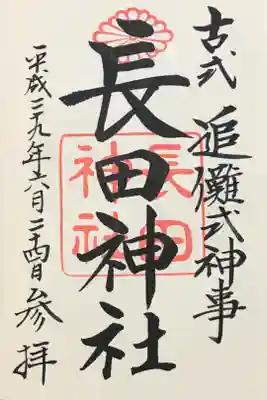 古式 追儺式神事
長田神社
長田神社
平成二十九年六月二十四日参拝